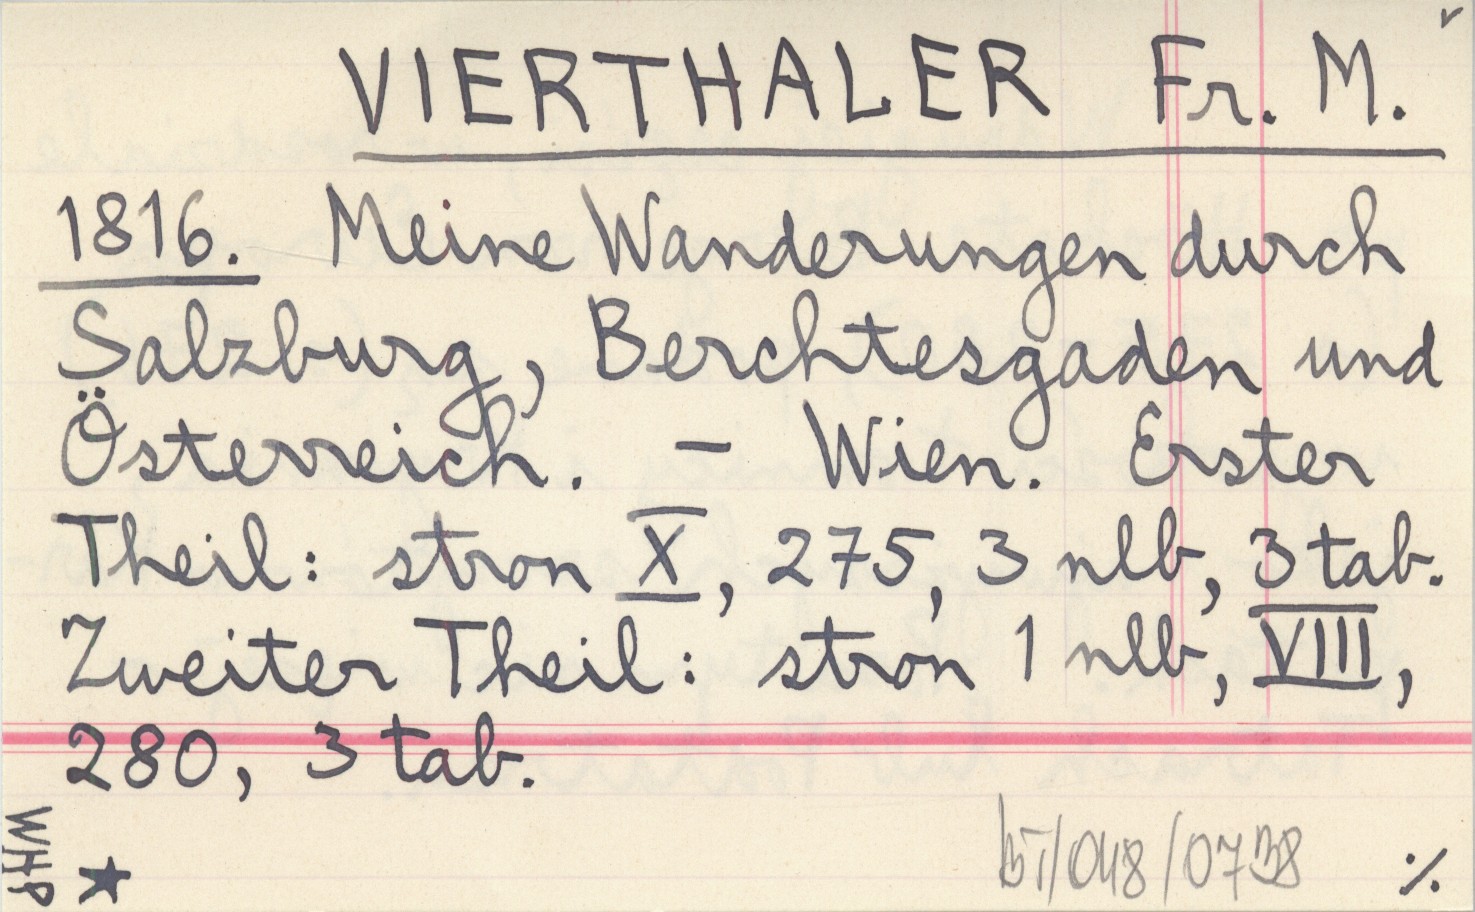 VIERTHALER Fr. M.
1816. Meine Wanderungen durch
Salzburg, Berchtesgaden und
Österreich. – Wien. Erster
Theil: stron X, 275, 3 nlb, 3 tab.
Zweiter Theil: stron 1 nlb, VIII,
280, 3 tab.
WHP
★
bT/048/0738
./.